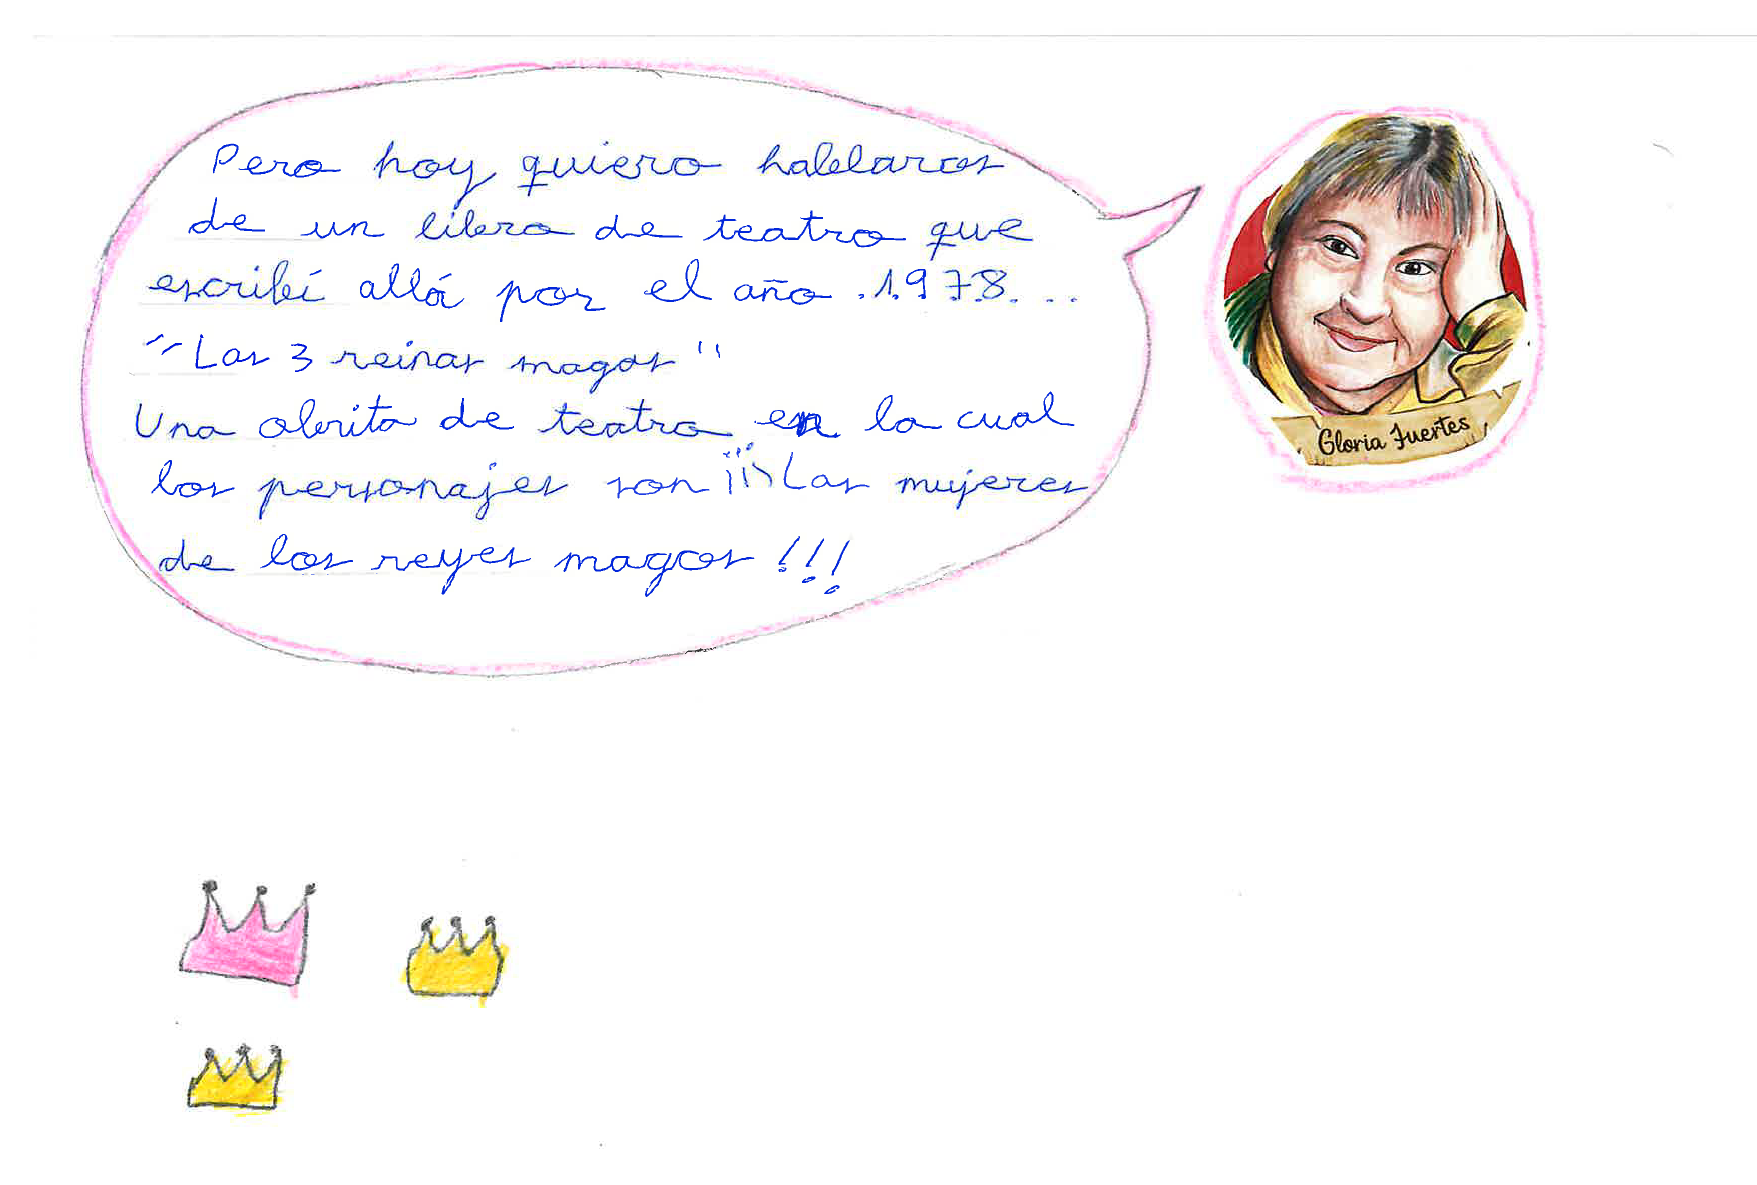 Pero hoy quiero hablaros
de un libro de teatro que
escribí allá por el año .1.9.7.8. . .
"Las 3 reinas magas"
Una obrita de teatro en la cual
los personajes son ¡¡¡Las mujeres
de los reyes magos!!!
Gloria Fuertes